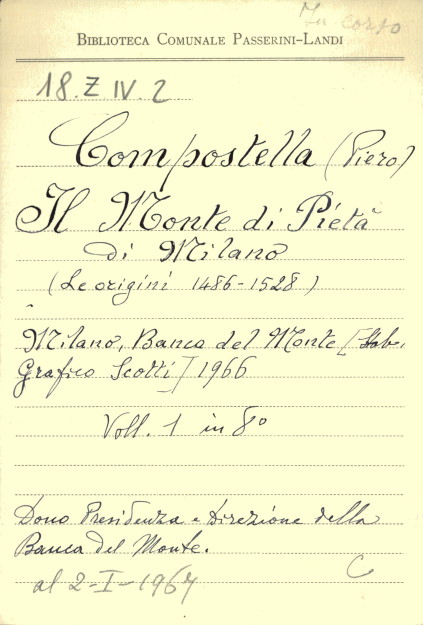 In corso
BIBLIOTECA COMUNALE PASSERINI-LANDI
18. Z IV. 2
Compostella (Piero)
Il Monte di Pietà
di Milano
(Le origini 1486-1528)
Milano, Banca del Monte [Stab.
Grafico Scotti] 1966
Voll. 1 in 8°
Dono Presidenza e Direzione della
Banca del Monte.
al 2-I-1967
C